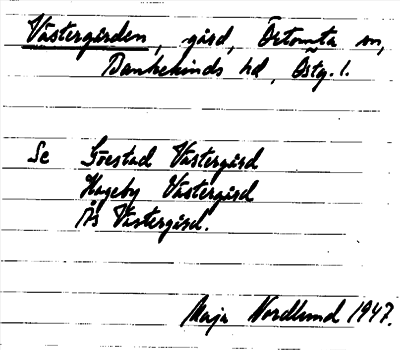 Västergården, gård, Örtomta sn,
Bankekinds hd, Östg. l.
Se Götestad Västergård
Hageby Västergård
Ås Västergård.
Maja Nordlund 1947.